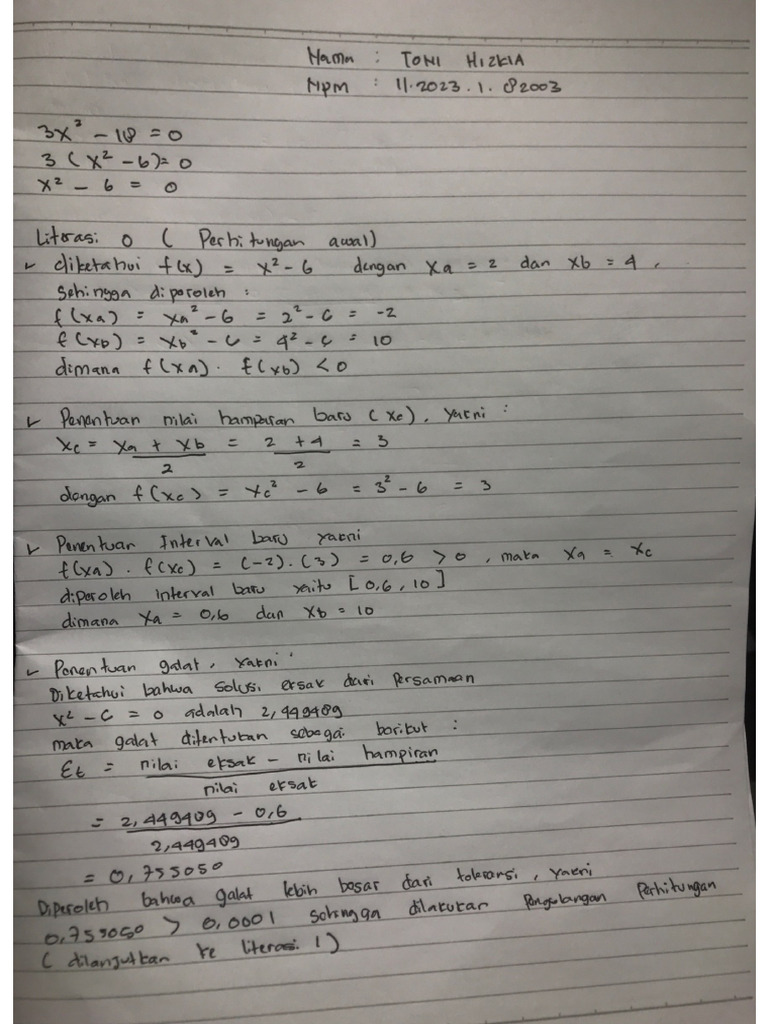 Nama : TONI HIZKIA
NPM : 11.2023.1.02003
3x² - 18 = 0
3 (x² - 6) = 0
x² - 6 = 0
Literasi 0 ( Perhitungan awal)
✓ diketahui f(x) = x² - 6 dengan xa = 2 dan xb = 4,
Sehingga diperoleh :
f(xa) = xa² - 6 = 2² - 6 = -2
f(xb) = xb² - 6 = 4² - 6 = 10
dimana f(xa) . f(xb) < 0
✓ Penentuan nilai hampiran baru (xc), yakni :
xc = xa + xb / 2 = 2 + 4 / 2 = 3
dengan f(xc) = xc² - 6 = 3² - 6 = 3
✓ Penentuan Interval baru yakni
f(xa) . f(xc) = (-2) . (3) = 0,6 > 0, maka xa = xc
diperoleh interval baru yaitu [0,6, 10]
dimana xa = 0,6 dan xb = 10
✓ Penentuan galat, yakni :
Diketahui bahwa solusi eksak dari Persamaan
x² - 6 = 0 adalah 2,449489
maka galat ditentukan sebagai berikut :
Et = nilai eksak - nilai hampiran / nilai eksak
= 2,449489 - 0,6 / 2,449489
= 0,755050
Diperoleh bahwa galat lebih besar dari toleransi, yakni
0,755050 > 0,0001 sehingga dilakukan Pengulangan Perhitungan
( dilanjutkan ke literasi 1)